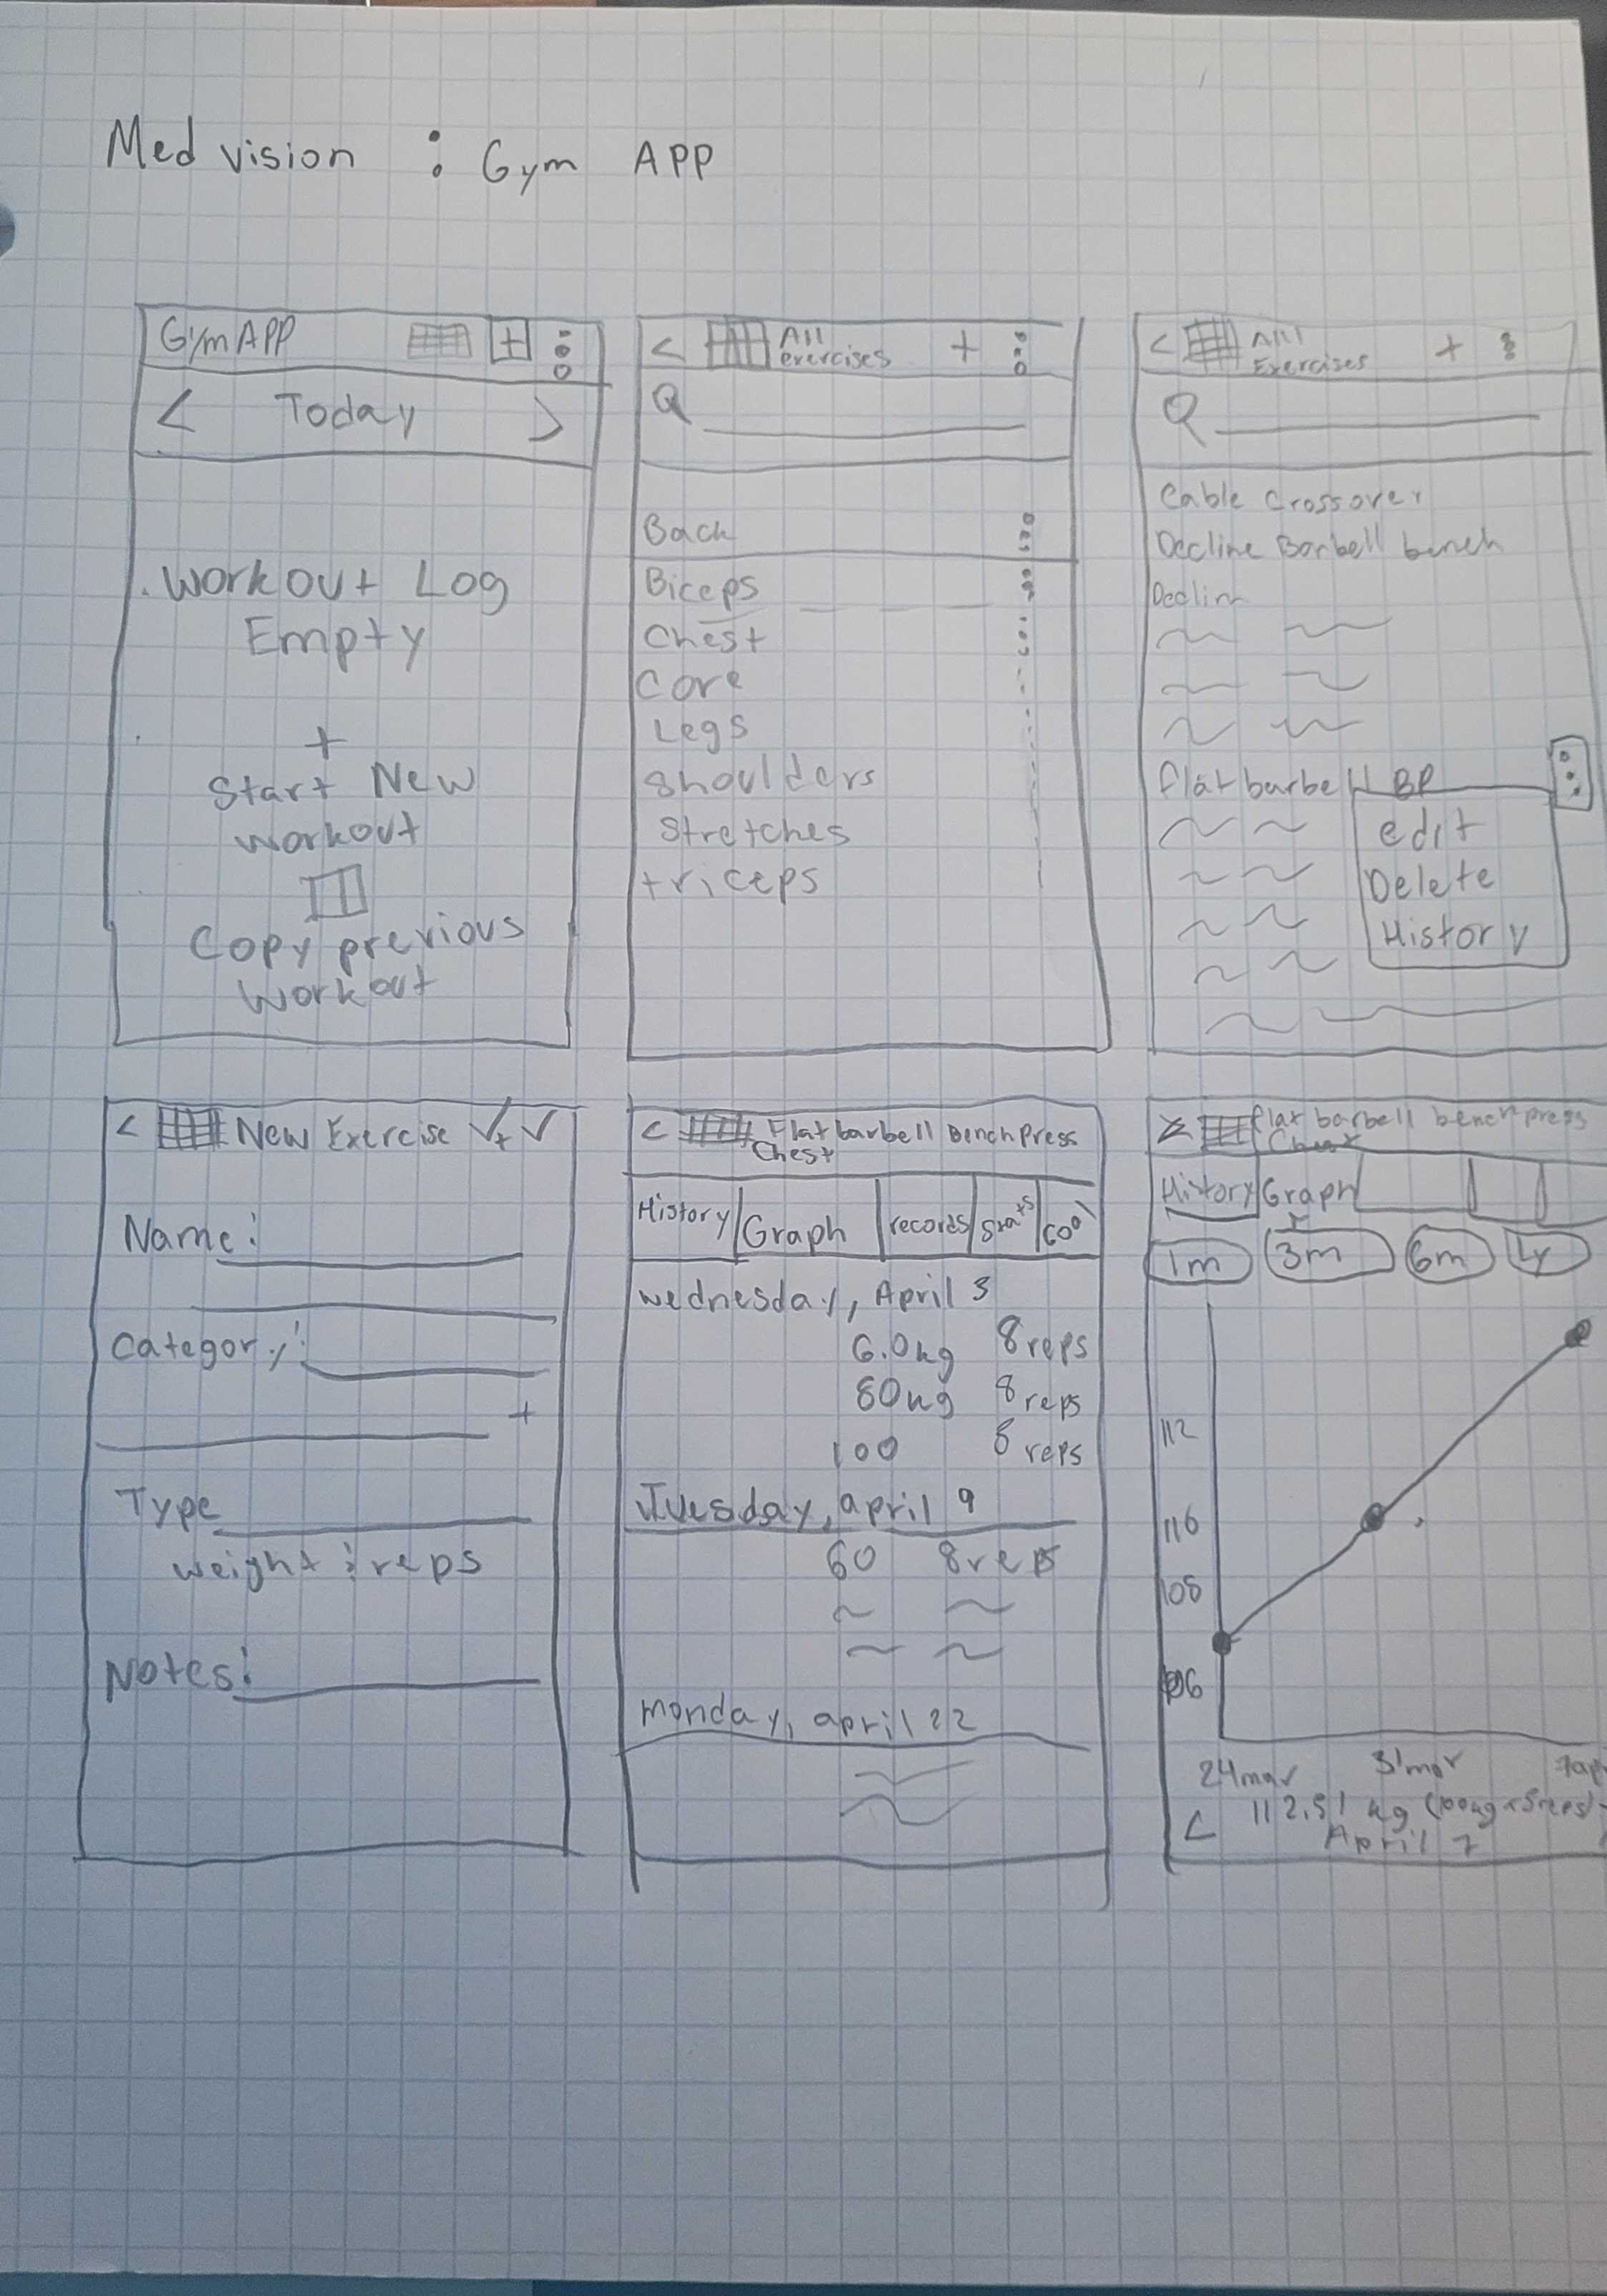 Med vision : Gym APP
GymAPP
< Today >
Workout Log
Empty
+
Start New
Workout
Copy previous
workout
< All
exercises +
Q
Back
Biceps
Chest
Core
Legs
Shoulders
Stretches
triceps
< All
Exercises +
Q
Cable Crossover
Decline Barbell bench
Declin
flat barbell BP
edit
Delete
History
< New Exercise
Name:
Category:
+
Type
weight & reps
Notes:
< Flat barbell Benchpress
Chest
History Graph records stats
Wednesday, April 3
6.0kg 8 reps
80kg 8 reps
100 8 reps
Tuesday, april 9
60 8 reps
monday, april 22
flat barbell benchpress
Chest
History Graph
1m 3m 6m 1y
112
110
108
106
24mar 31mar 7ap
< 112.51 kg (100kg
April 7